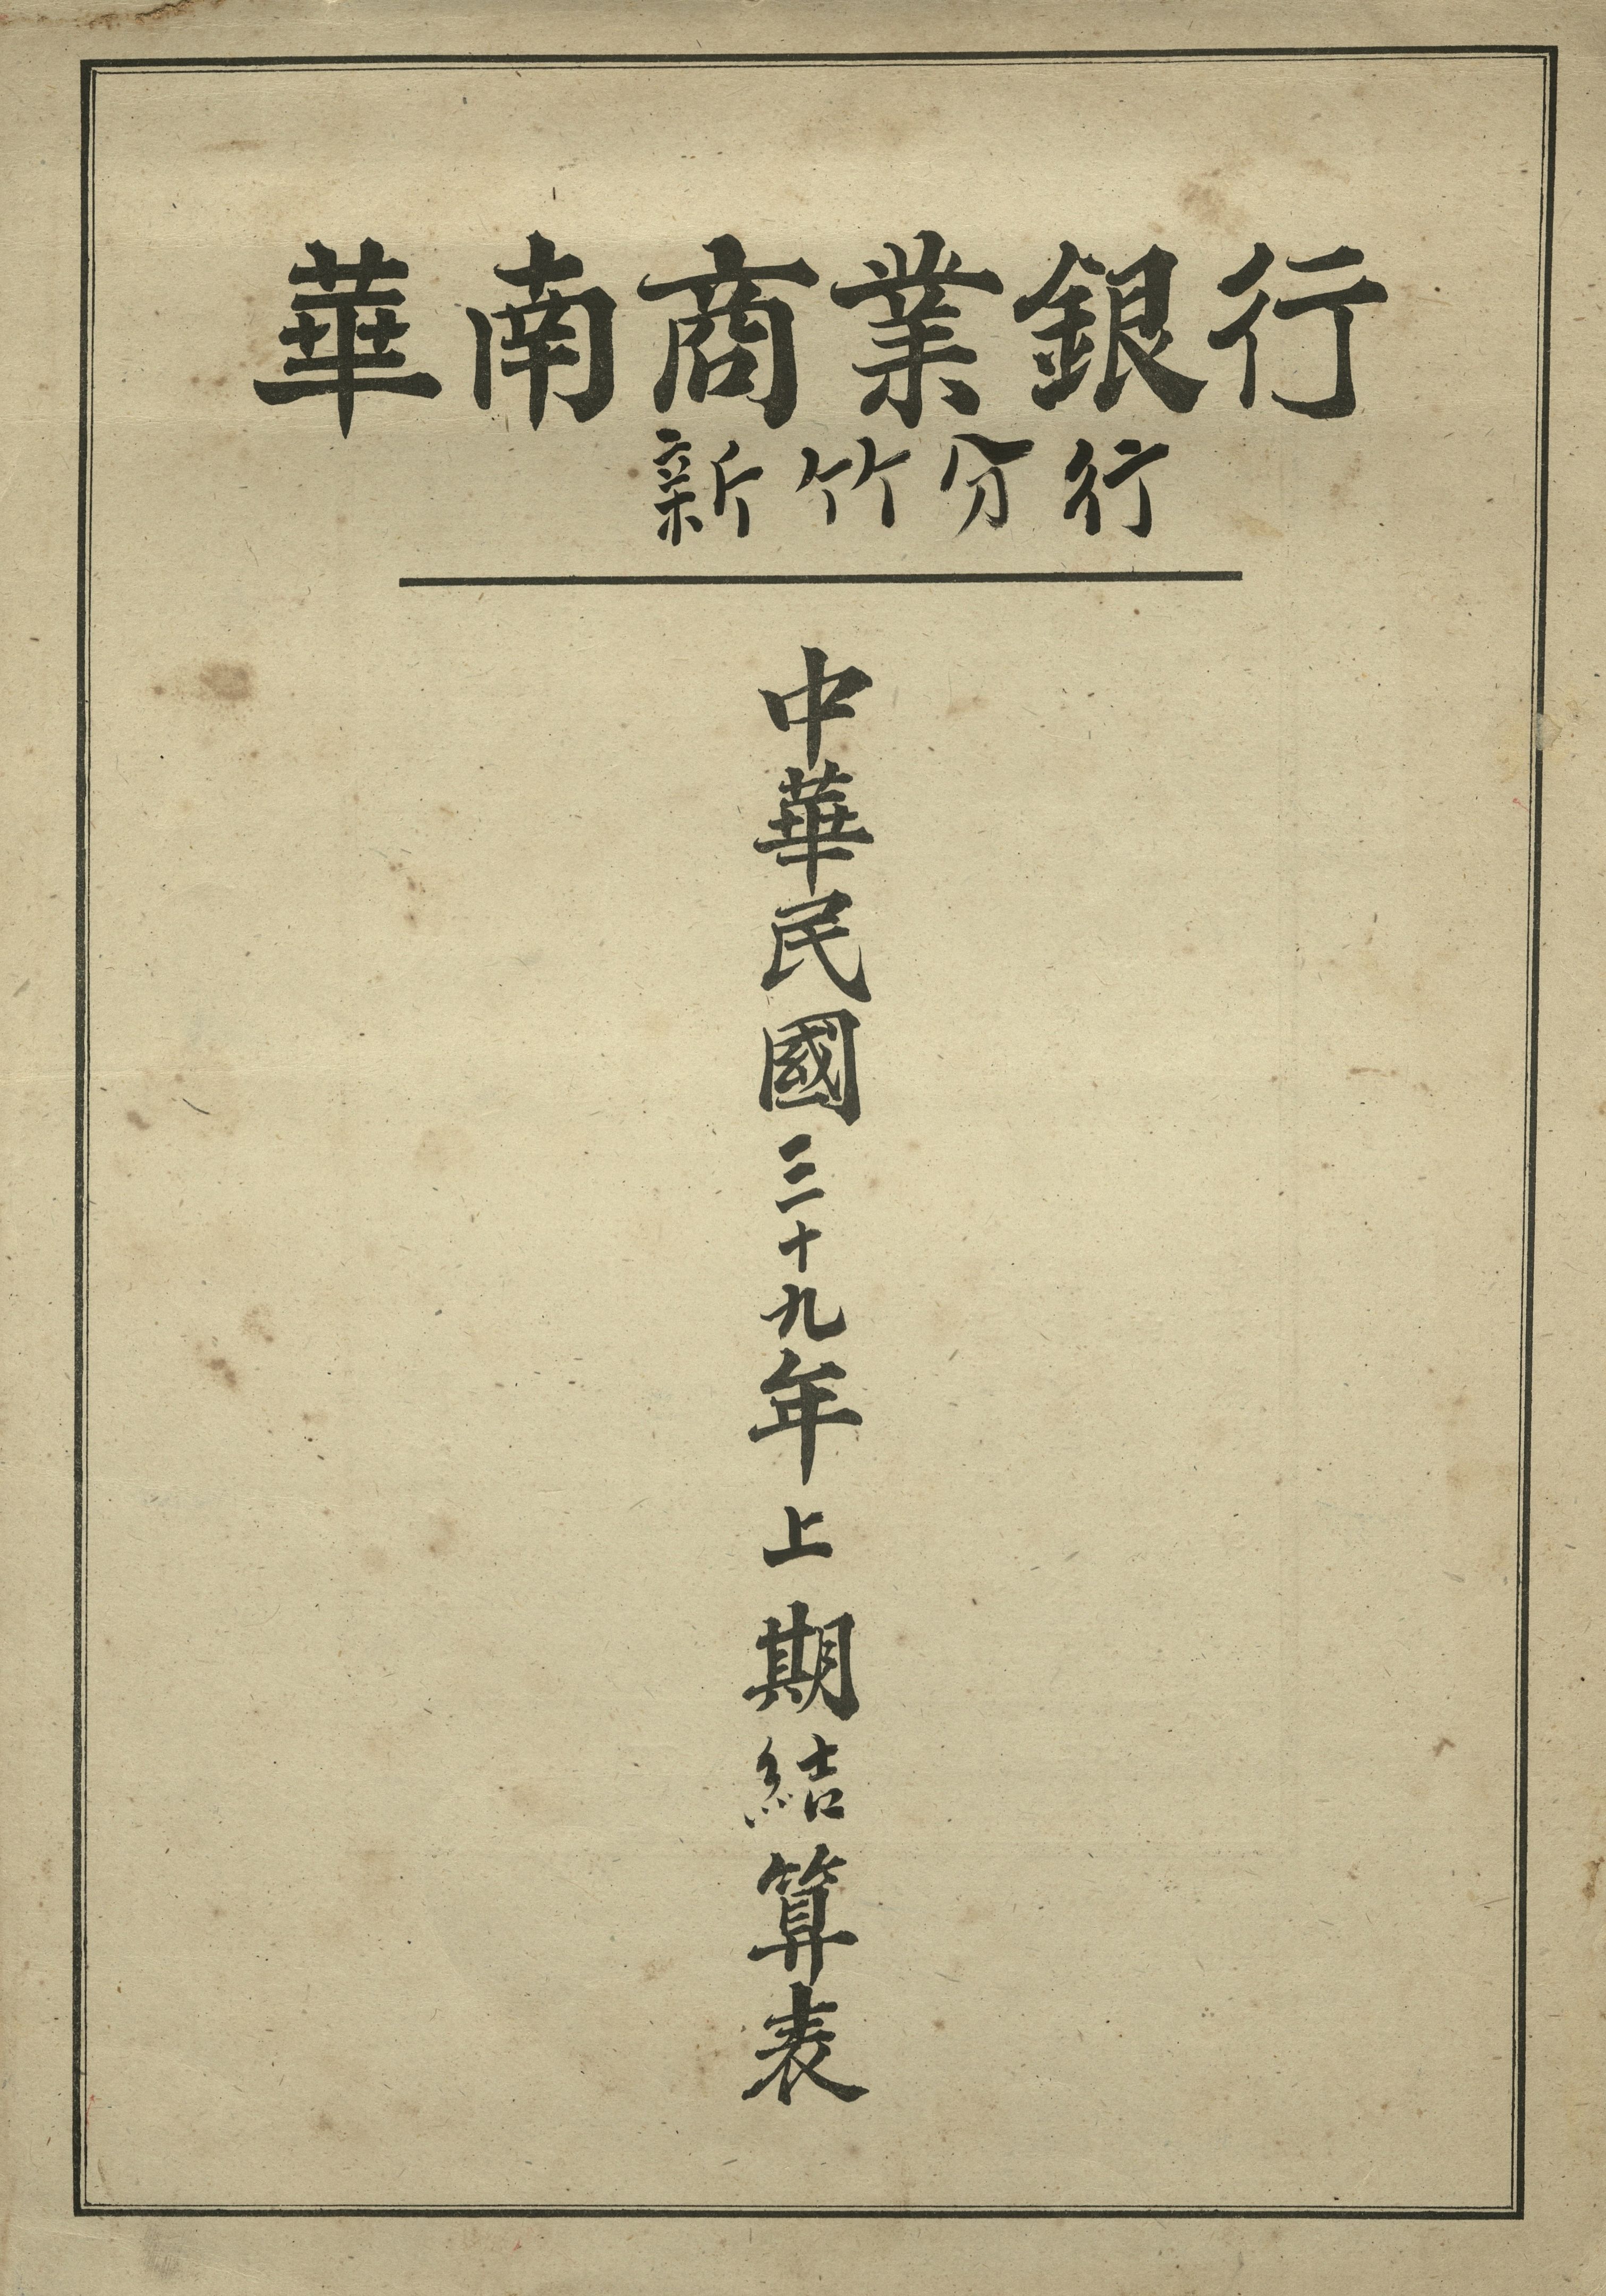 華南商業銀行
新竹分行
中華民國三十九年上期結算表